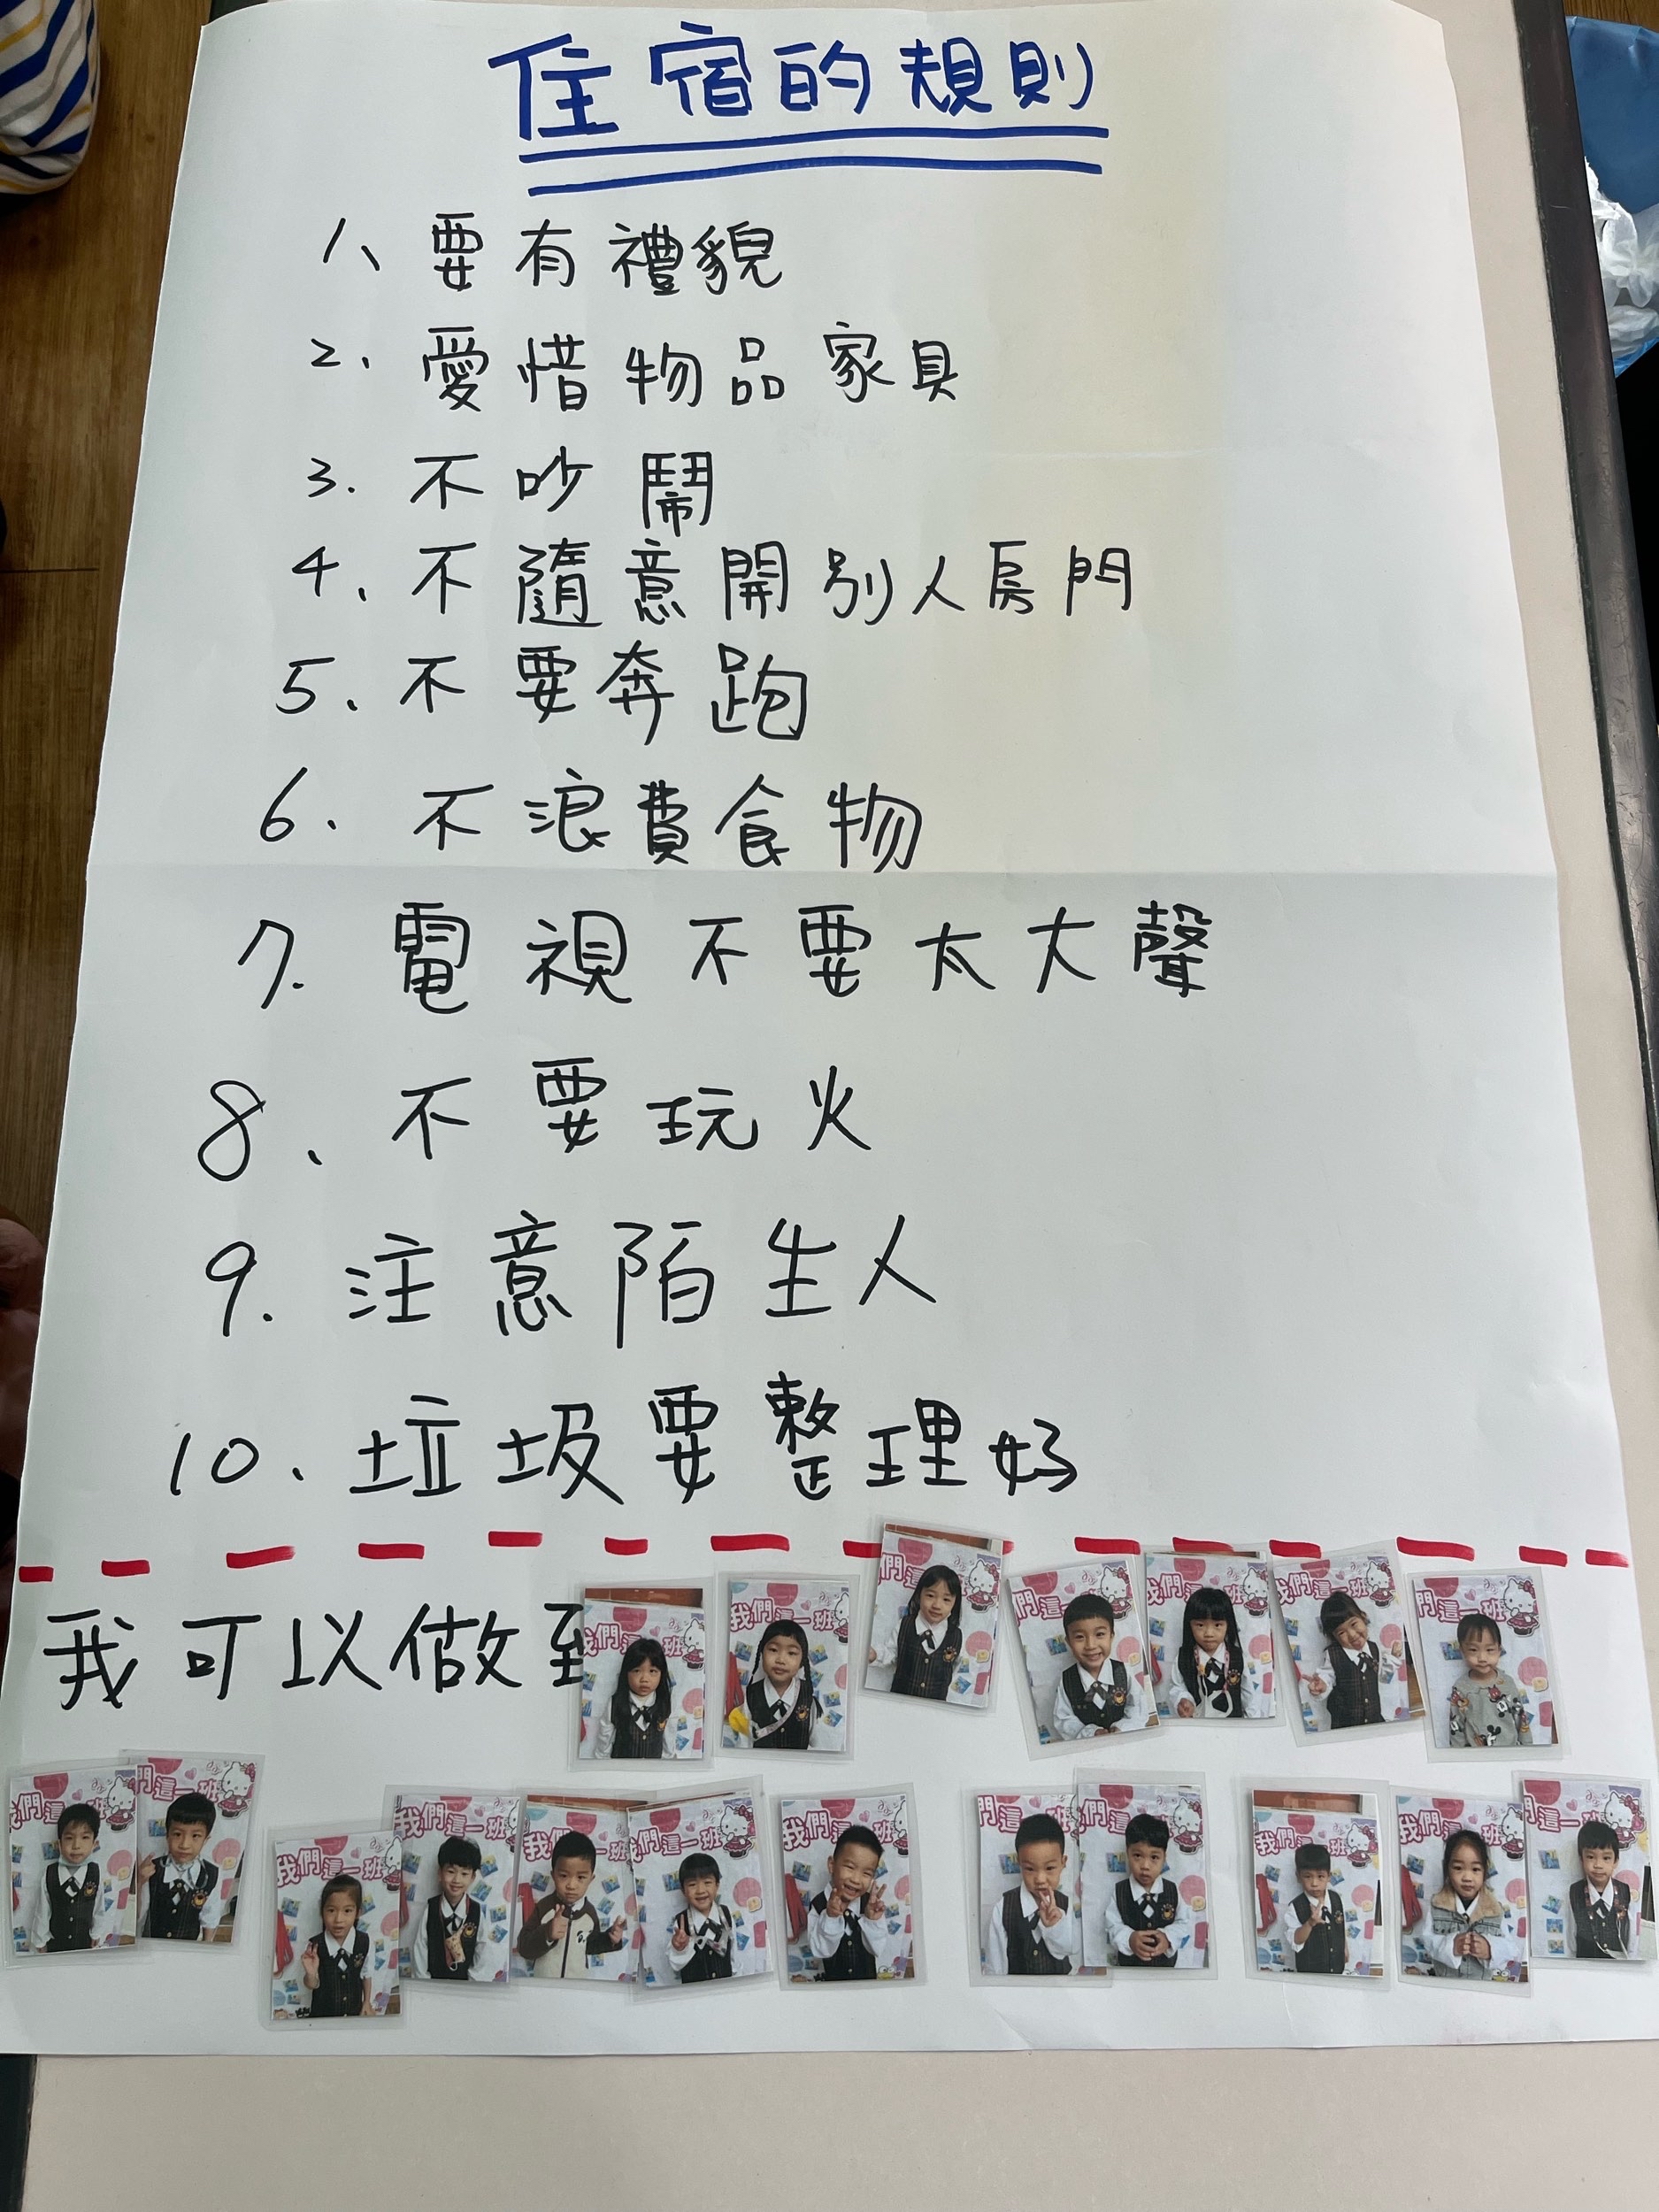 住宿的規則
1、要有禮貌
2.愛惜物品家具
3.不吵鬧
4、不隨意開別人房門
5.不要奔跑
6.不浪費食物
7.電視不要太大聲
8、不要玩火
9.注意陌生人
10.垃圾要整理好
我可以做到
我們這一班
我們這一班
們這
們這一班
我們這一班
我們這一班
們這一班
我們這一班
們這一班
我們這一班
我們這一班
我們這一班
我們這一班
我們這一班
們這一班
我們這一班
我們這一班
我們這一班
們這一班